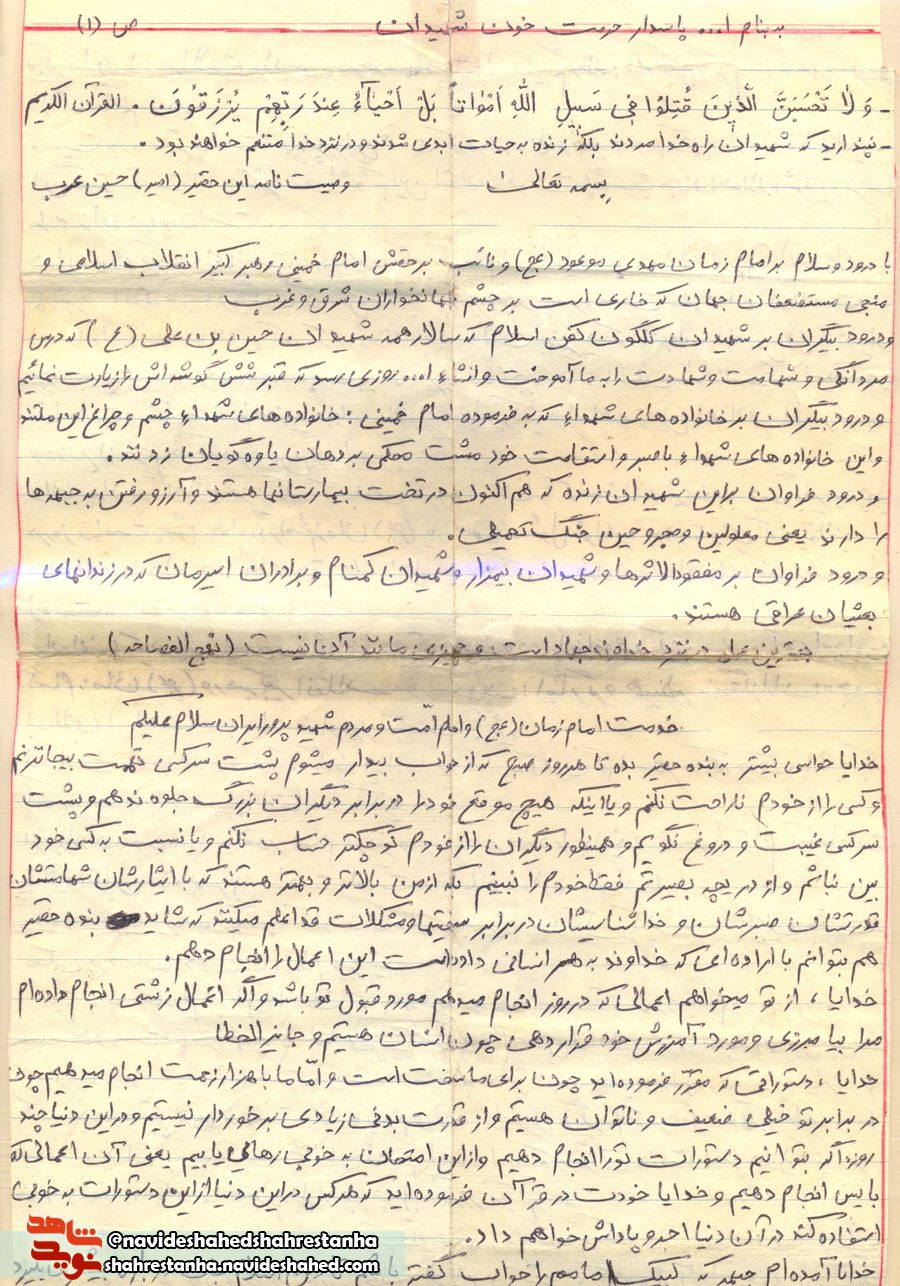 به بنام ا... پاسدار حرمت خون شهیدان ص (۱)
- وَلَا تَحْسَبَنَّ الَّذِینَ قُتِلُوا فِی سَبِیلِ اللهِ اَمْوَاتاً بَلْ اَحْیَاءُ عِنْدَ رَبِّهِمْ یُرْزَقُونَ . القرآن الکریم
- نپندارید که شهیدان راه خدا مردند بلکه زنده به حیات ابدی شدند و در نزد خدا متنعم خواهند بود .
بسمه تعالی وصیت نامه این حقیر (امیر) حسین عرب
با درود و سلام بر امام زمان مهدی موعود (عج) و نائب بر حقش امام خمینی رهبر کبیر انقلاب اسلامی و
منجی مستضعفان جهان که خاری است بر چشم جهانخواران شرق و غرب
و درود بیکران بر شهیدان گلگون کفن اسلام که سالار همه شهیدان حسین بن علی (ع) که درس
مردانگی و شهامت و شهادت را به ما آموخت و انشاء ا... روزی رسد که قبر شش گوشه اش را زیارت نمائیم
و درود بیکران بر خانواده های شهداء که به فرموده امام خمینی : خانواده های شهداء چشم و چراغ این ملتند
و این خانواده های شهداء با صبر و استقامت خود مشت محکمی بر دهان یاوه گویان زدند .
و درود فراوان براین شهیدان زنده که هم اکنون در تخت بیمارستانها هستند و آرزو رفتن به جبهه ها
را دارند یعنی معلولین و مجروحین جنگ تحمیلی .
و درود فراوان بر مفقودالاثرها و شهیدان بیمزار و شهیدان گمنام و برادران اسیرمان که در زندانهای
بعثیان عراقی هستند .
بهترین عمل در نزد خداوند جهاد است و چیزی مانند آن نیست (نهج الفصاحه)
خدمت امام زمان (عج) و امام امّت و مردم شهید پرور ایران سلام علیکم
خدایا حواسی بیشتر به بنده حقیر بده تا هر روز صبح که از خواب بیدار میشوم پشت سر کسی تهمت بیجا نزنم
و کسی را از خودم ناراحت نکنم و یا اینکه هیچ موقع خود را در برابر دیگران بزرگ جلوه ندهم و پشت
سر کسی غیبت و دروغ نگویم و همینطور دیگران را از خودم کوچکتر حساب نکنم و یا نسبت به کسی خود
بین نباشم و از دریچه بصیرتم فقط خودم را نبینم بلکه از من بالاتر و بهتر هستند که با ایثارشان شهامتشان
قدرتشان صبرشان و خداشناسیشان در برابر سختیها و مشکلات قد علم میکنند که شاید بنده حقیر
هم بتوانم با اراده ای که خداوند به هر انسانی داده است این اعمال را انجام دهم .
خدایا ، از تو میخواهم اعمالی که در روز انجام میدهم مورد قبول تو باشد و اگر اعمال زشتی انجام داده ام
مرا بیامرزی و مورد آمرزش خود قرار دهی چون انسان هستیم و جایز الخطا
خدایا ، دستوراتی که مقرر فرموده اید چون برای ما سخت است و امّا ما با هزار زحمت انجام میدهیم چون
در برابر تو خیلی ضعیف و ناتوان هستیم و از قدرت بدنی زیادی برخوردار نیستیم و در این دنیا چند
روزه اگر بتوانیم دستورات تو را انجام دهیم و از این امتحان به خوبی رهایی یابیم یعنی آن اعمالی که
بایس انجام دهیم و خدایا خودت در قرآن فرموده اید که هرکس در این دنیا از این دستورات به خوبی
استفاده کند در آن دنیا اجر و پاداش خواهم داد .
خدایا آمده ام جبهه که لبیک امامم را جواب گفته
شاهد نوید
@navideshahedshahrestanha
shahrestanha.navideshahed.com